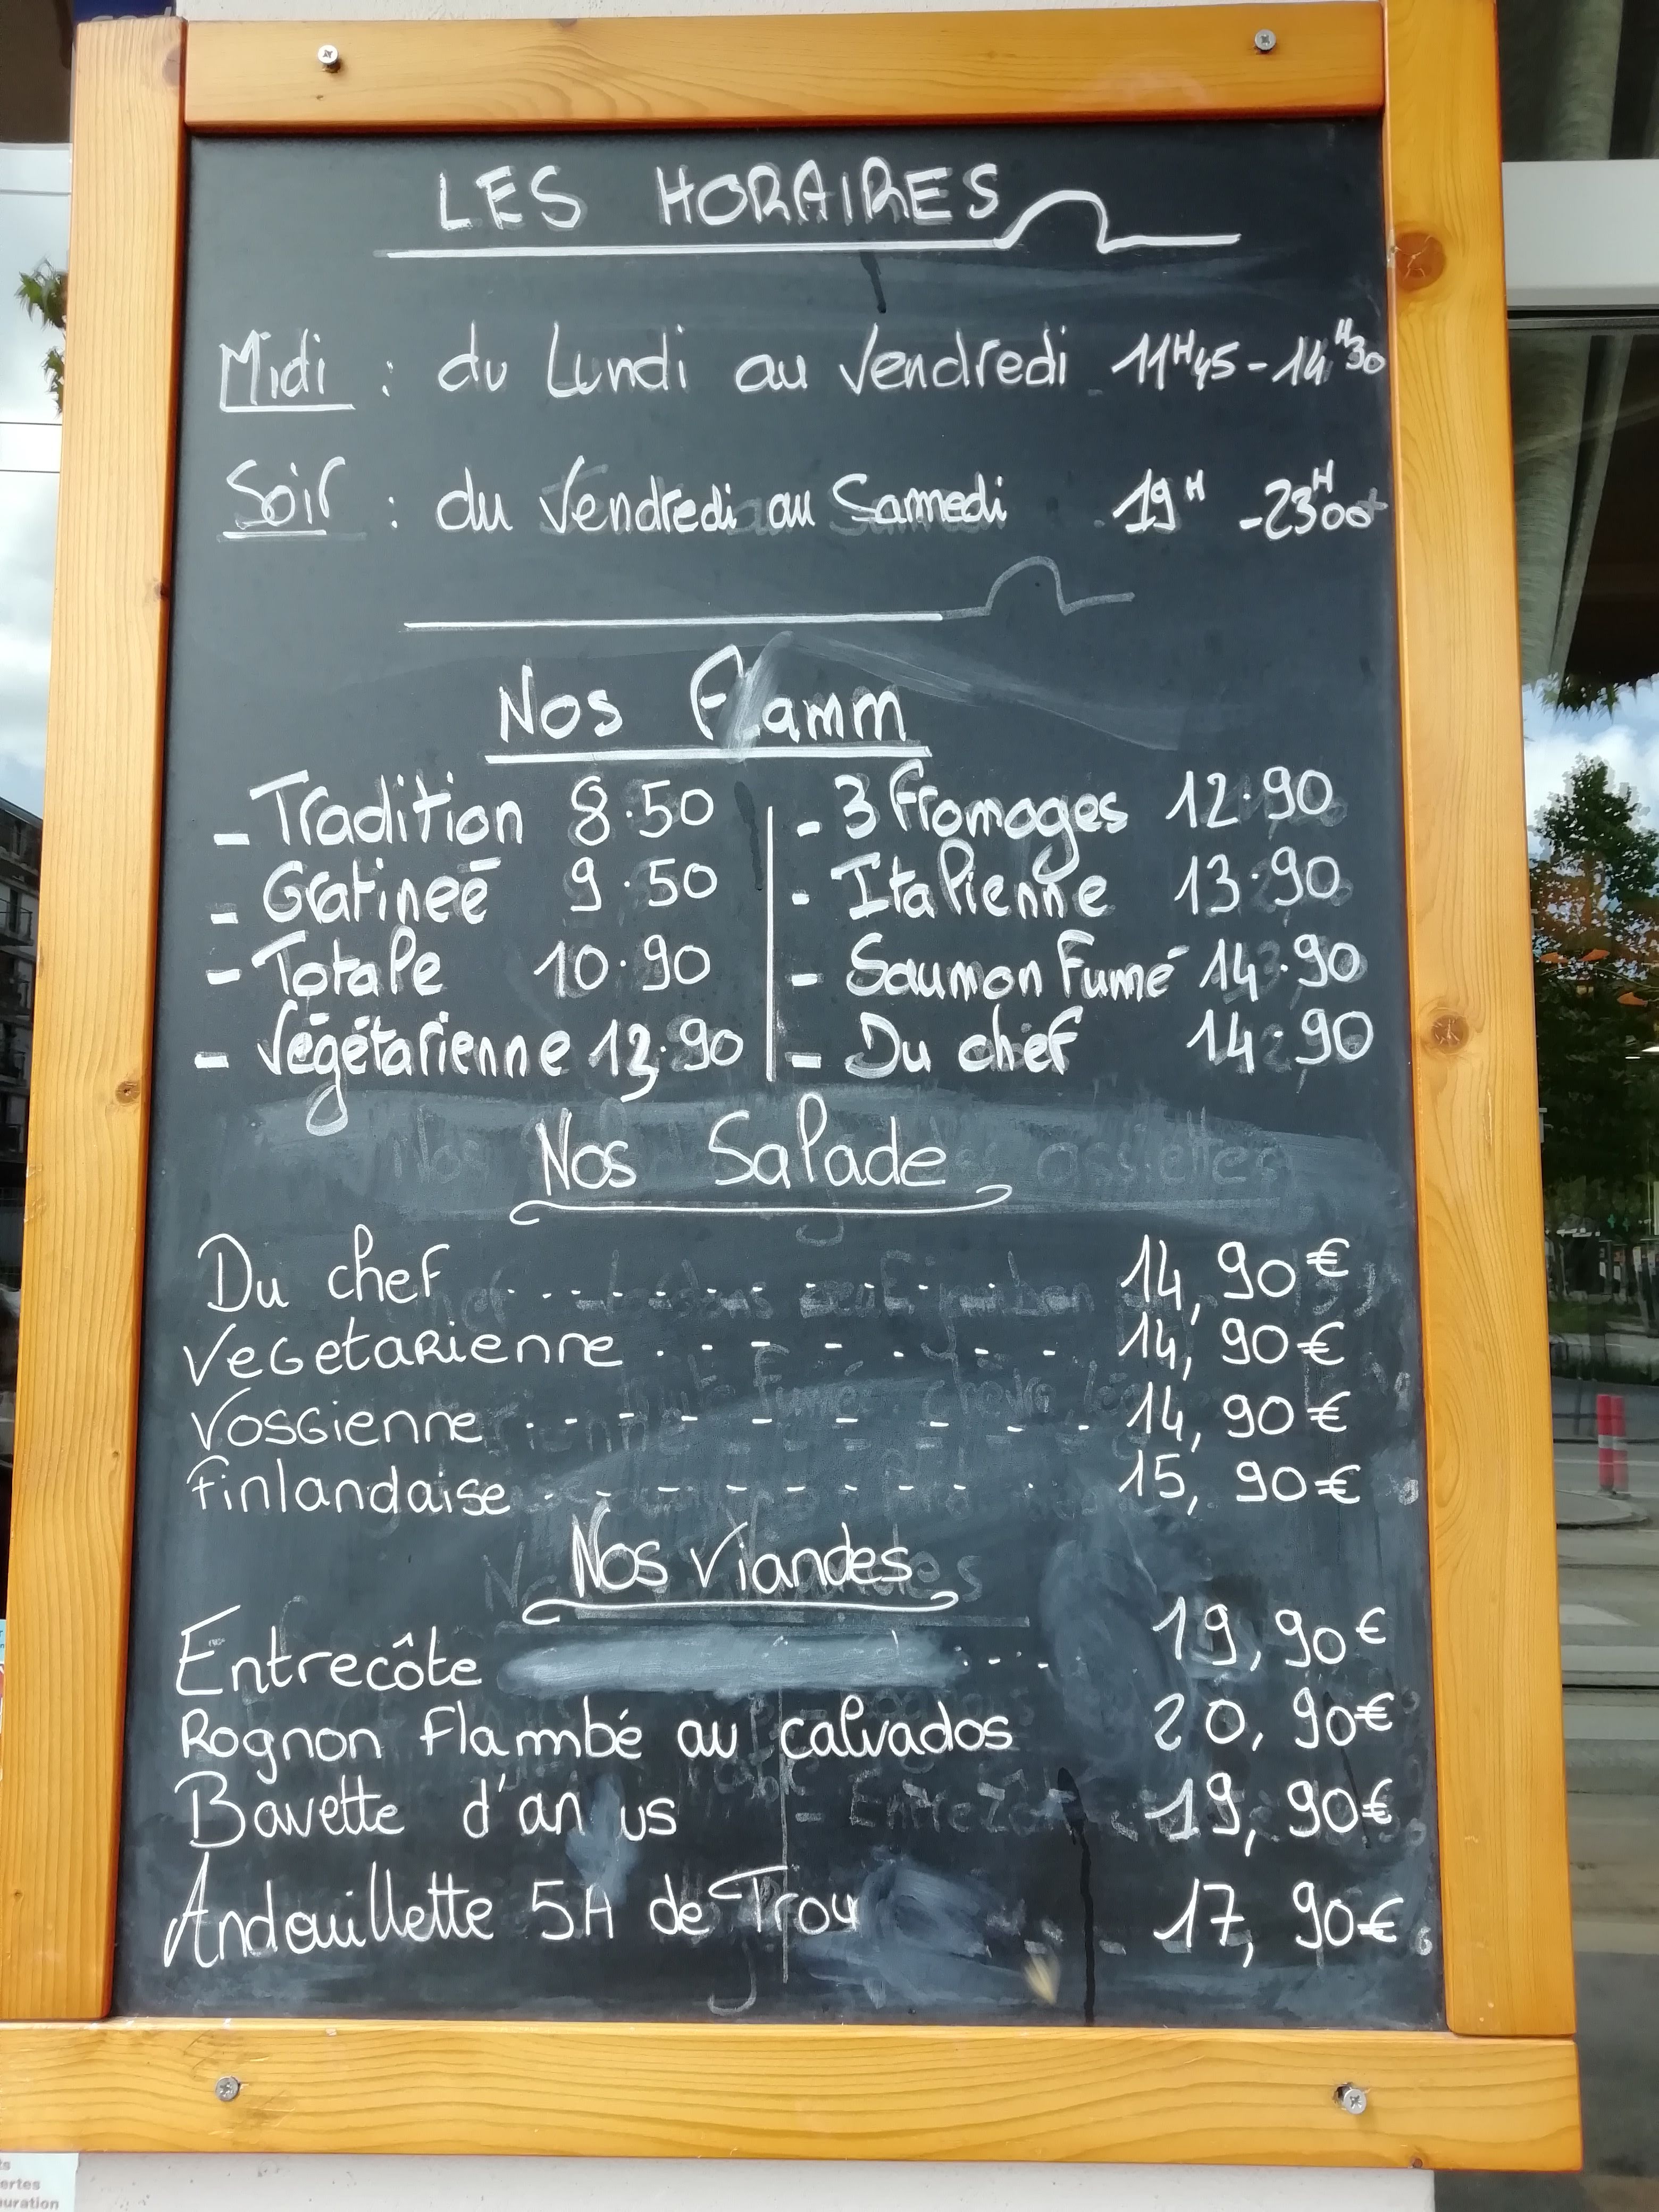 LES HORAIRES
Midi : du Lundi au Vendredi 11H45 - 14H30
Soir : du Vendredi au Samedi 19H - 23H00
Nos Flamm
- Tradition 8.50
- Gratineé 9.50
- Totale 10.90
- Végétarienne 13.90
- 3 fromages 12.90
- Italienne 13.90
- Saumon Fumé 14.90
- Du chef 14.90
Nos Salade
Du chef 14,90€
Vegetarienne 14,90€
Vosgienne 14,90€
finlandaise 15,90€
Nos Viandes
Entrecôte 19,90€
Rognon flambé au calvados 20,90€
Bavette d'an us 19,90€
Andouillette 5A de Troy 17,90€
ertes
uration